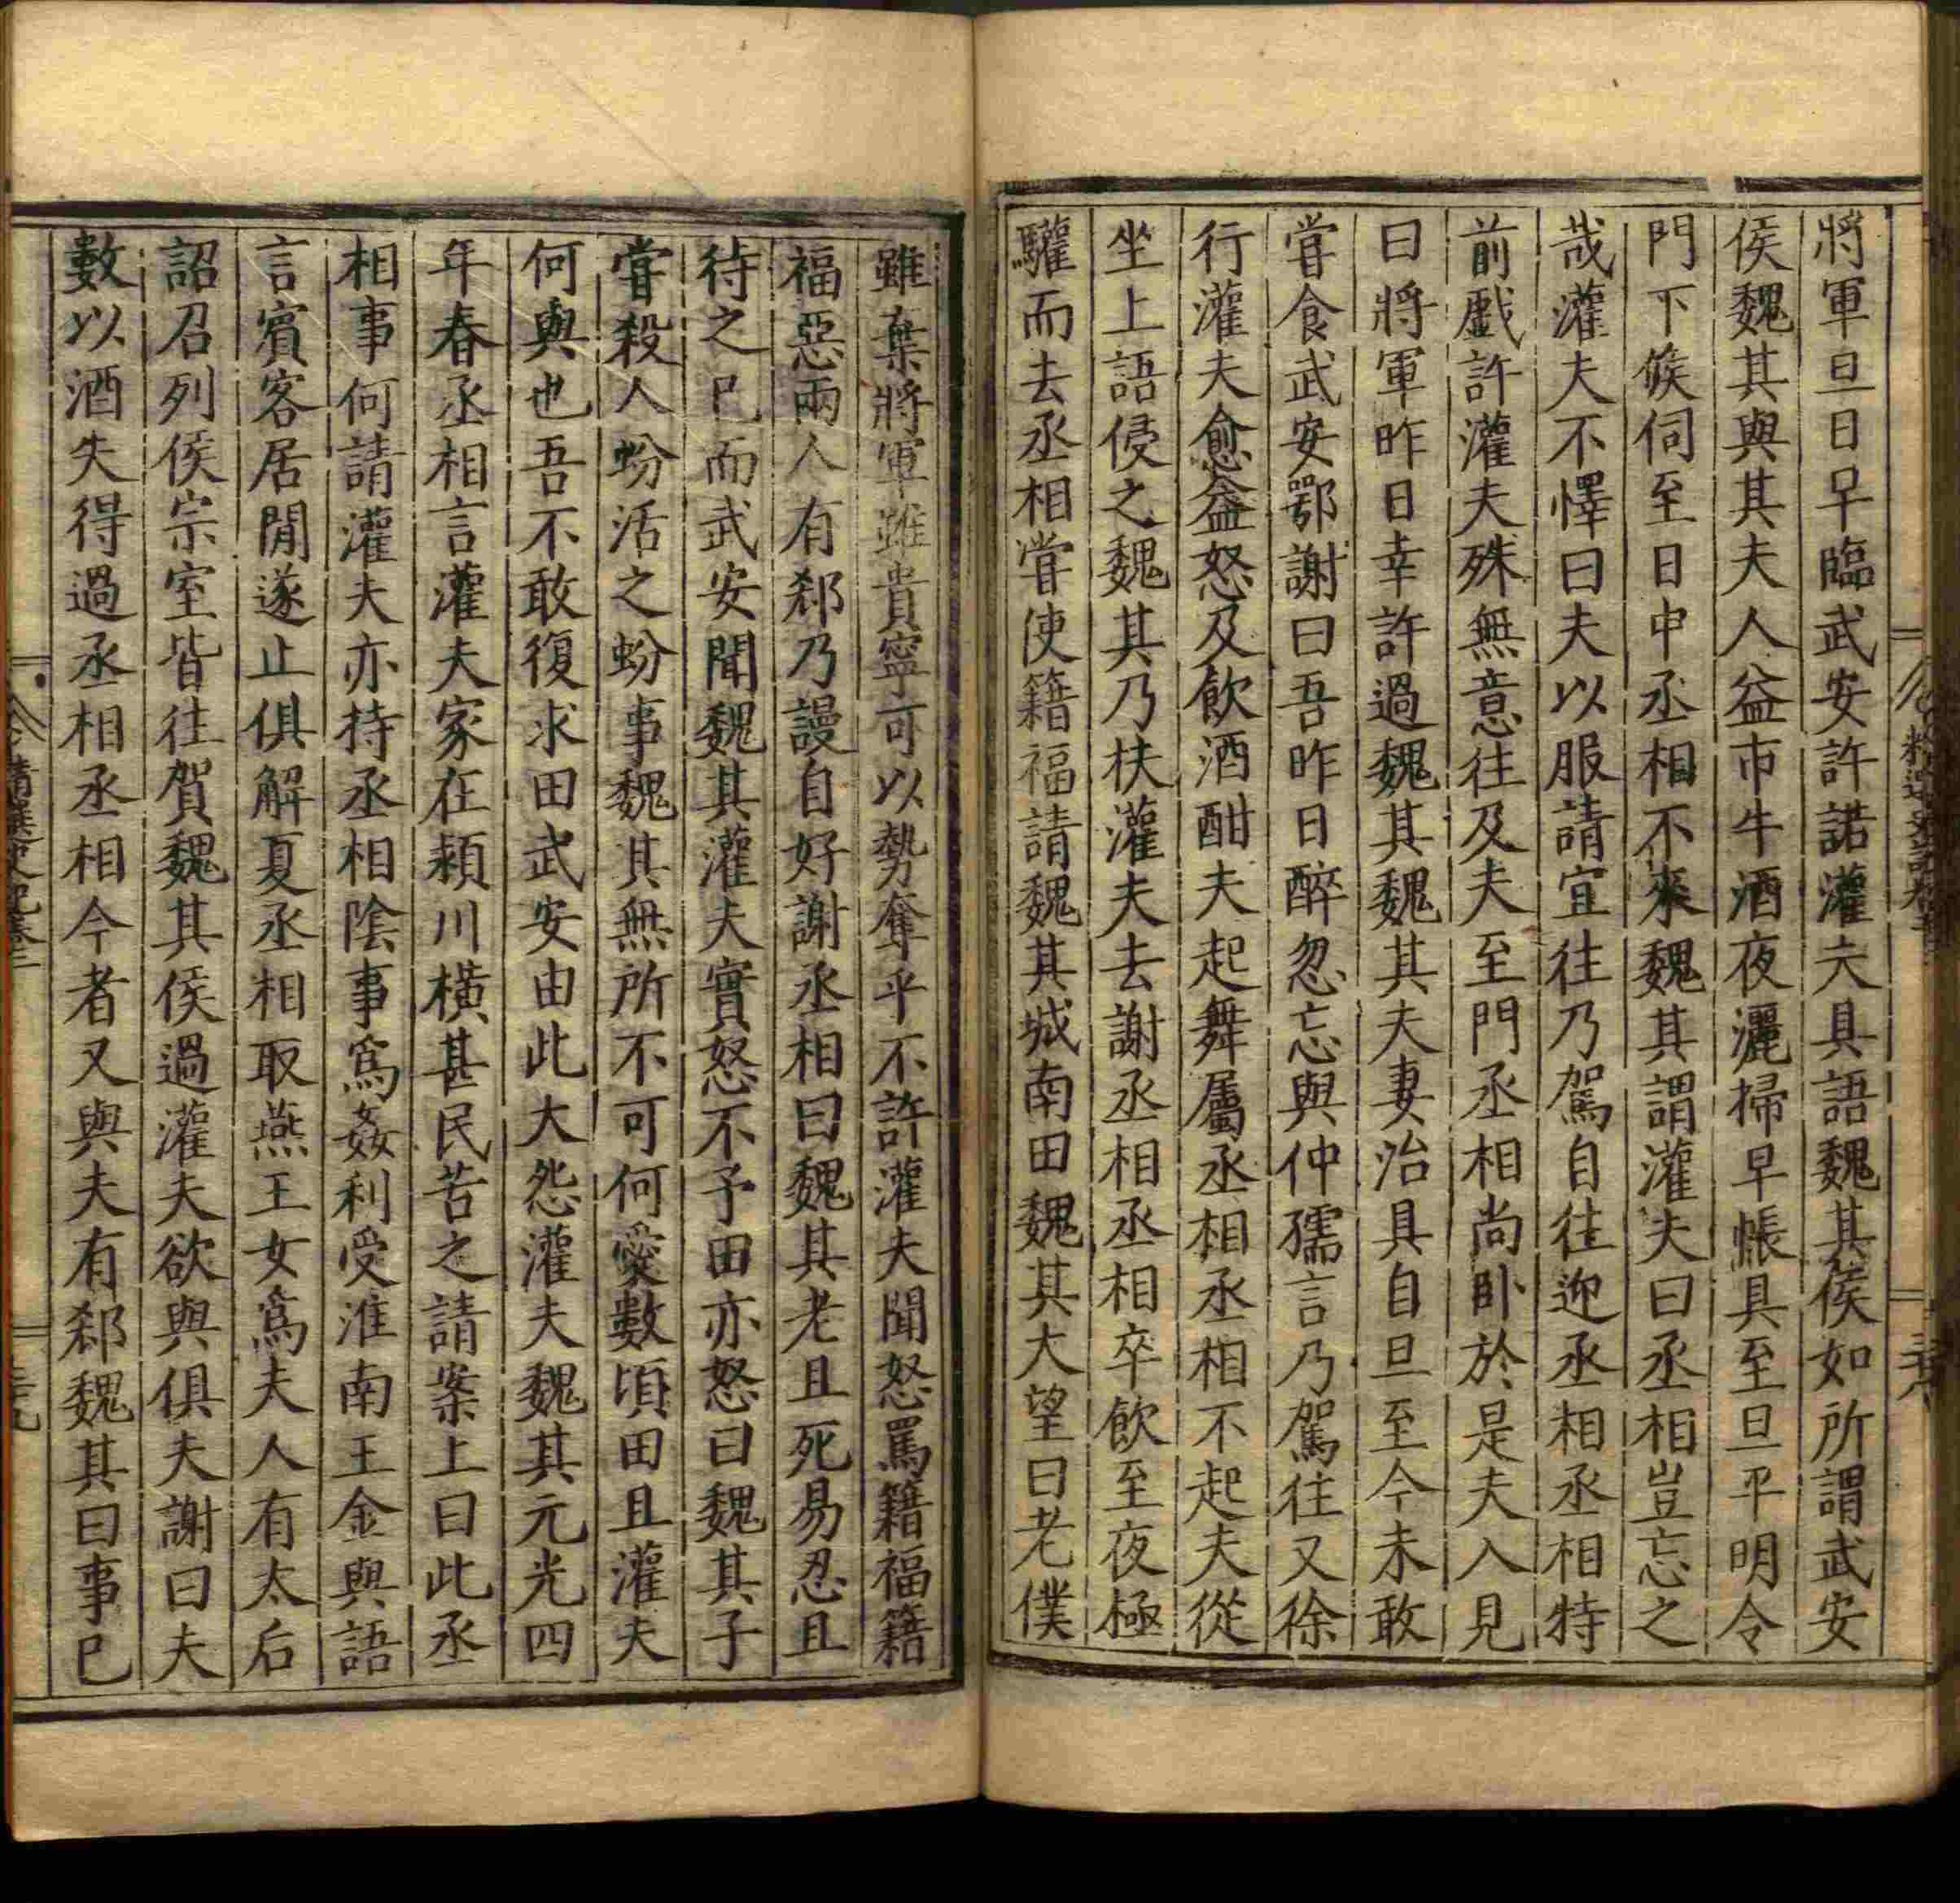 將軍旦日早臨武安許諾灌夫具語魏其侯如所謂武安
侯魏其與其夫人益市牛酒夜灑掃早帳具至旦平明令
門下候伺至日中丞相不來魏其謂灌夫曰丞相豈忘之
哉灌夫不懌曰夫以服請宜往乃駕自往迎丞相丞相特
前戲許灌夫殊無意往及夫至門丞相尚卧於是夫入見
曰將軍昨日幸許過魏其魏其夫妻治具自旦至今未敢
嘗食武安鄂謝曰吾昨日醉忽忘與仲孺言乃駕往又徐
行灌夫愈益怒及飲酒酣夫起舞屬丞相丞相不起夫從
坐上語侵之魏其乃扶灌夫去謝丞相丞相卒飲至夜極
驩而去丞相嘗使籍福請魏其城南田魏其大望曰老僕
雖棄將軍雖貴寧可以勢奪乎不許灌夫聞怒罵籍福籍
福惡兩人有郄乃謾自好謝丞相曰魏其老且死易忍且
待之已而武安聞魏其灌夫實怒不予田亦怒曰魏其子
嘗殺人蚡活之蚡事魏其無所不可何愛數頃田且灌夫
何與也吾不敢復求田武安由此大怨灌夫魏其元光四
年春丞相言灌夫家在頴川橫甚民苦之請案上曰此丞
相事何請灌夫亦持丞相陰事爲姦利受淮南王金與語
言賓客居閒遂止俱解夏丞相取燕王女爲夫人有太后
詔召列侯宗室皆往賀魏其侯過灌夫欲與俱夫謝曰夫
數以酒失得過丞相丞相今者又與夫有郄魏其曰事已
精選史記卷三